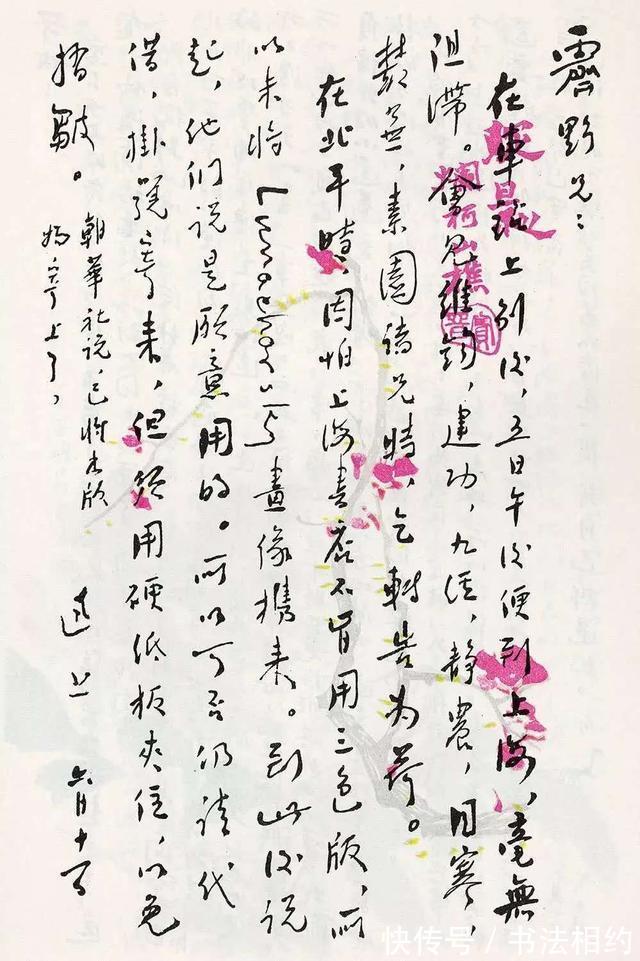 霽野兄：
在車站上别後，五日午後便到上海，毫無
阻滯。會見維鈞，建功，九經，靜農，目寒，
叢蕪，素園諸兄時，乞轉告為荷。
在北平時，因怕上海書店不肯用三色版，所
以未將 Lermontov 畫像攜來。到此後說
起，他们說是願意用的。所以可否仍請代
借，掛號寄來，但須用硬紙板夾住，以免
摺皺。
朝華社說，已將木版
寄上了，
迅 上 六月十一日
柯山樵
快传号／书法相约